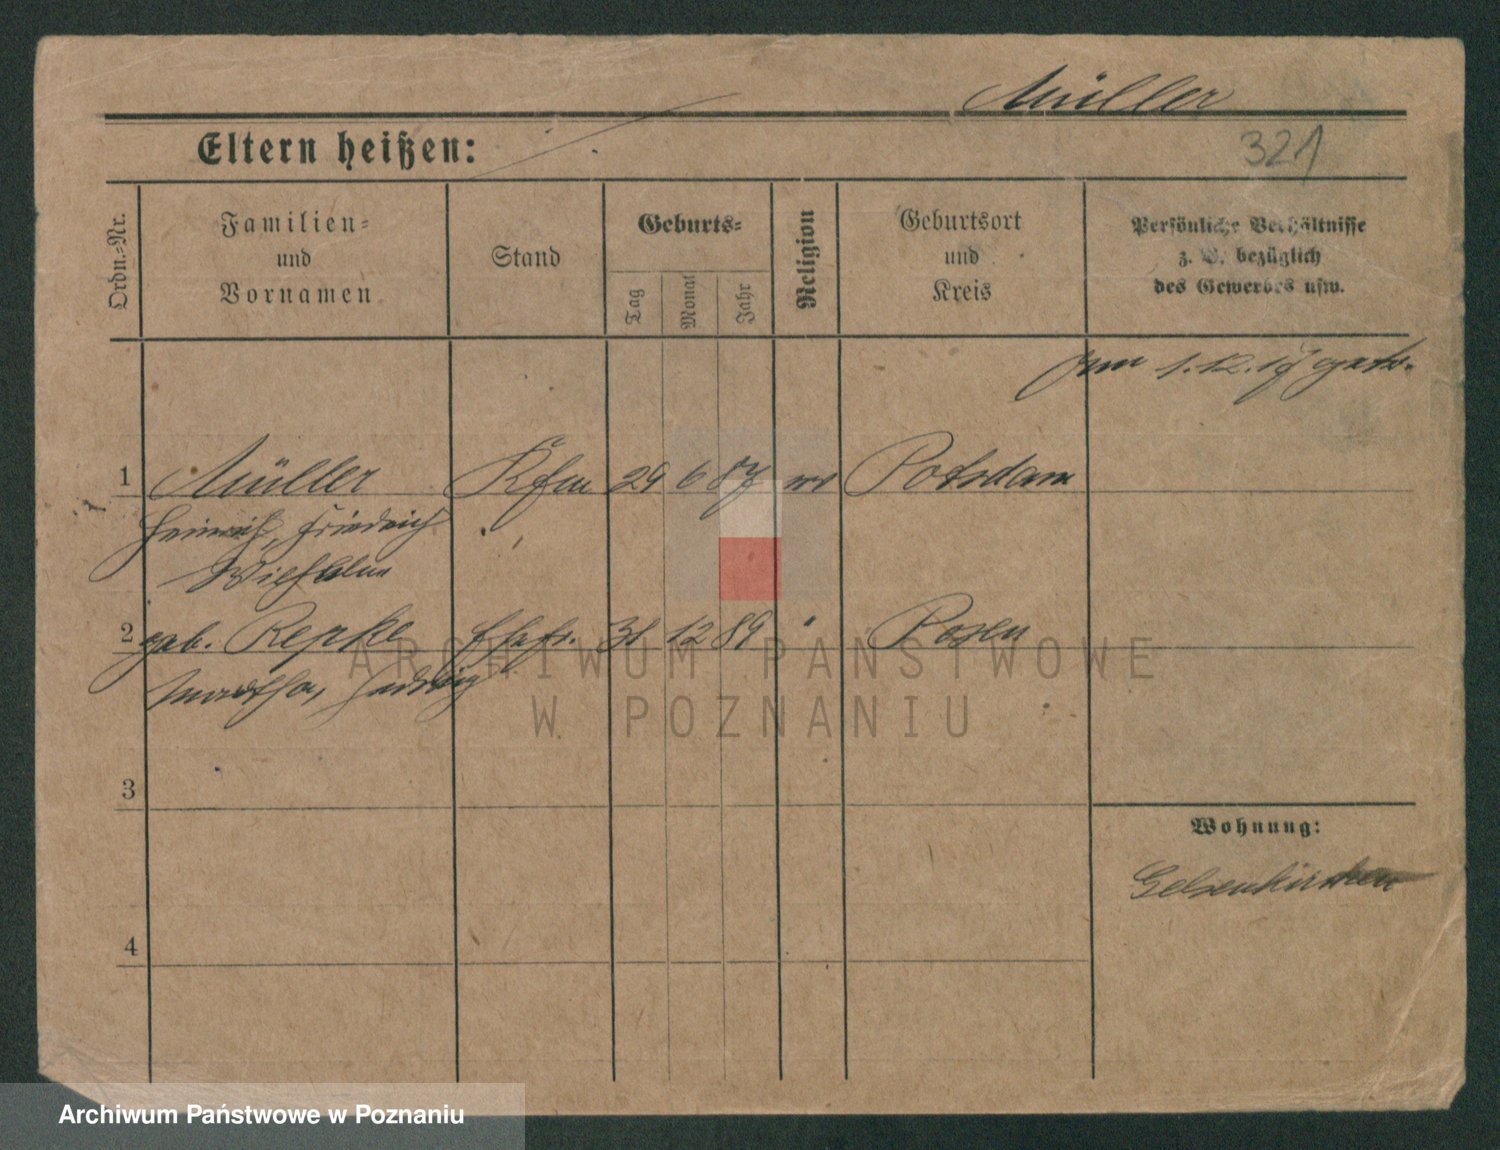 Müller
Eltern heißen:
321
Ordn.=Nr.
Familien=
und
Vornamen
Stand
Geburts=
Tag
Monat
Jahr
Religion
Geburtsort
und
Kreis
Persönliche Verhältnisse
z. B. bezüglich
des Gewerbes usw.
1.12.17
1 Müller Kfm 29 6 87 Potsdam
Heinrich, Friedrich
Wilhelm
2 geb. Repke Ehefr. 31 12 89 " Posen
Martha, Hedwig
3
Wohnung:
Gelsenkirchen
4
ARCHIWUM PAŃSTWOWE
W POZNANIU
Archiwum Państwowe w Poznaniu